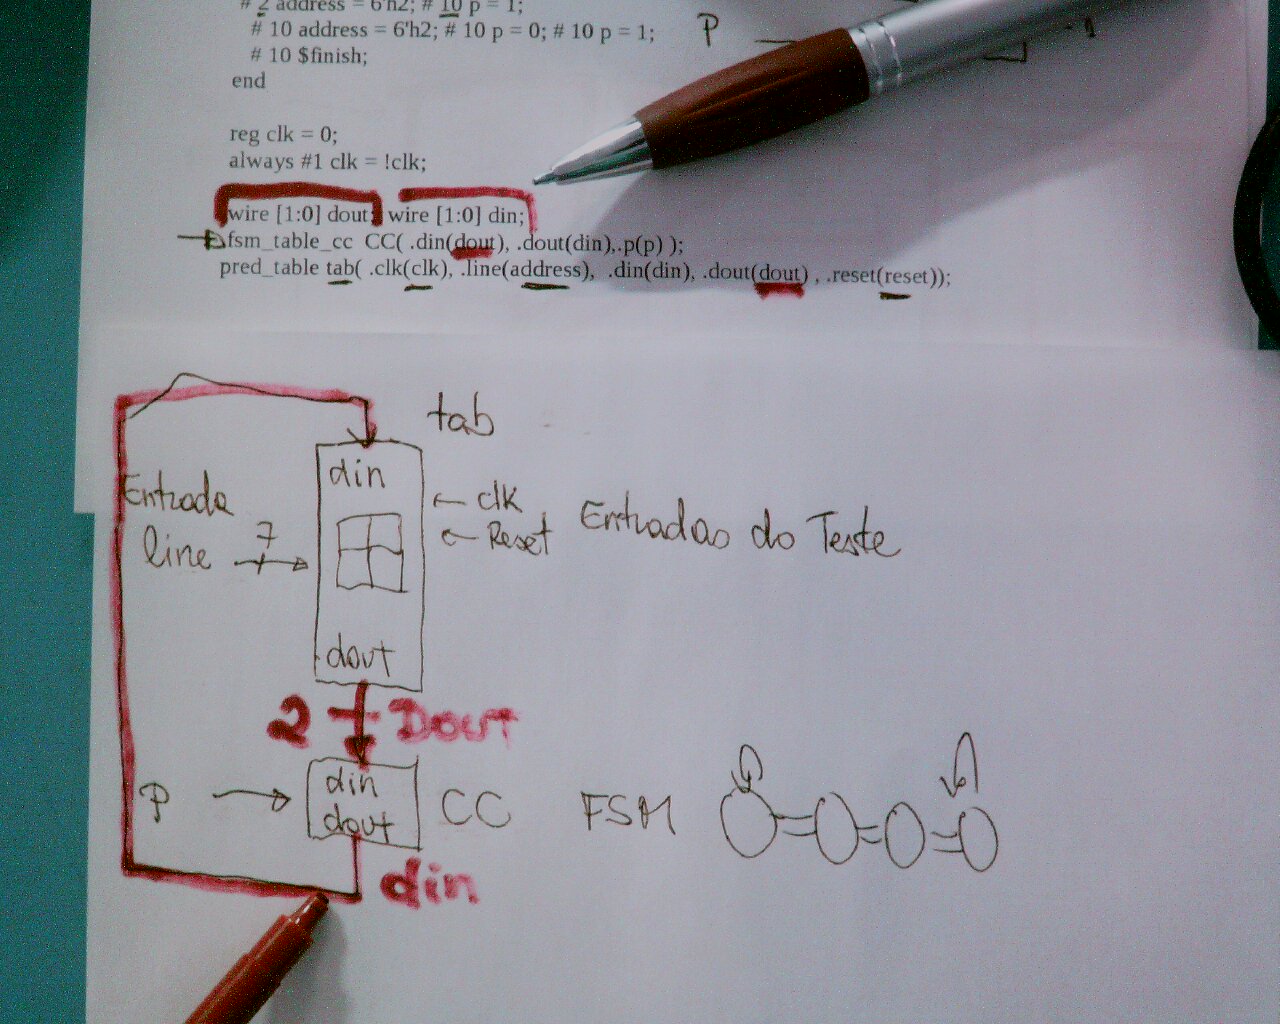 # 2 address = 6'h2; # 10 p = 1;
# 10 address = 6'h2; # 10 p = 0; # 10 p = 1;
P
# 10 $finish;
end
reg clk = 0;
always #1 clk = !clk;
wire [1:0] dout; wire [1:0] din;
fsm_table_cc CC( .din(dout), .dout(din),.p(p) );
pred_table tab( .clk(clk), .line(address), .din(din), .dout(dout) , .reset(reset));
tab
din
Entrada
← clk
line 7
← Reset
Entradas do Teste
dout
2 Dout
P
din
dout
CC
FSM
din